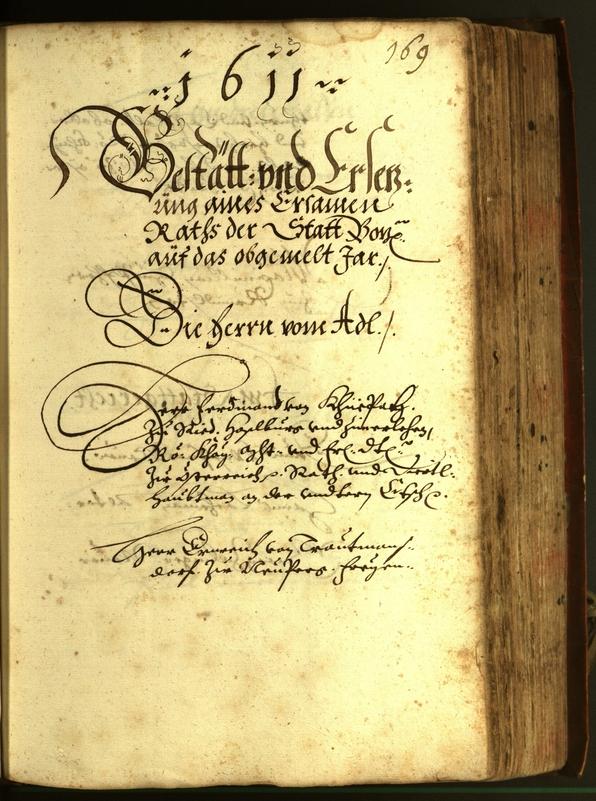 169
1611
Bestätt: und Ersetz:
ung aines Ersamen
Raths der Statt Boz:
auf das obgemelt Jar./.
Die Herrn vom Adl./.
Herr Ferdinand von Khüepach
zu Ried, Haslburg und Himerlehen,
Rö: Khay: Mht: und Frl: Dtl:
zu Österreich Rath und
Haubtman an der undtern Etsch
Herr Ernreich von Trautmans-
dorf zu Neu